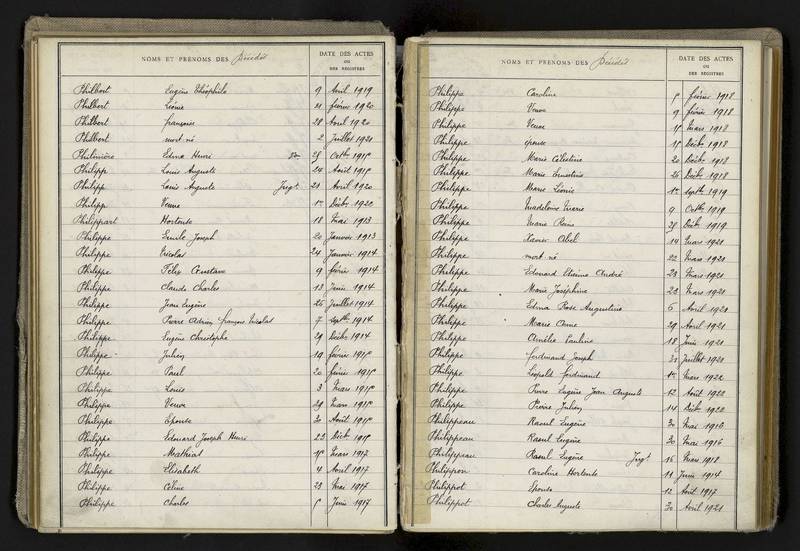 NOMS ET PRÉNOMS DES Décédés
DATE DES ACTES
OU
DES REGISTRES
Philbert Eugène Théophile 9 Avril 1919
Philbert Léonie 21 février 1920
Philbert françoise 28 Avril 1920
Philbert mort né 2 Juillet 1921
Edma Henri 25 Octbre 1915
Philipp Louis Auguste 24 Août 1915
Philipp Louis Auguste Jugt 21 Avril 1920
Philipp Veuve 1er Décbre 1920
Philippart Hortense 18 Mai 1913
Philippe Emile Joseph 20 Janvier 1913
Philippe Nicolas 24 Janvier 1914
Philippe Félix Gustave 9 février 1914
Philippe Claude Charles 13 Juin 1914
Philippe Jean Eugène 25 Juillet 1914
Philippe Pierre Adrien françois Nicolas 7 Septbre 1914
Philippe Eugène Christophe 29 Décbre 1914
Philippe Julien 19 février 1915
Philippe Paul 20 février 1915
Philippe Louis 3 Mars 1915
Philippe Veuve 29 Mars 1915
Philippe Epouse 30 Août 1915
Philippe Edouard Joseph Henri 23 Décbre 1915
Philippe Mathias 15 Mars 1917
Philippe Elisabeth 4 Avril 1917
Philippe Céline 23 Mai 1917
Philippe Charles 5 Juin 1917
NOMS ET PRÉNOMS DES Décédés
DATE DES ACTES
OU
DES REGISTRES
Philippe Caroline 5 février 1918
Philippe Veuve 9 février 1918
Philippe Veuve 15 Mars 1918
Philippe épouse 15 Décbre 1918
Philippe Marie Célestine 20 Décbre 1918
Philippe Marie Ernestine 26 Décbre 1918
Philippe Marie Léonie 1er Septbre 1919
Philippe Madeleine Marie 9 Octbre 1919
Philippe Marie Reine 25 Décbre 1919
Philippe Xavier Abel 14 Mars 1921
Philippe mort né 22 Mars 1921
Philippe Edouard Etienne André 23 Mars 1921
Philippe Marie Joséphine 28 Mars 1921
Philippe Edma Rose Augustine 6 Avril 1921
Philippe Marie Anne 29 Avril 1921
Philippe Amélie Pauline 18 Juin 1921
Philippe ferdinand Joseph Juillet 1921
Philippe Léopold ferdinand 1er Mars 1922
Philippe Pierre Eugène Jean Auguste 12 Août 1922
Philippe Pierre Julien 14 Décbre 1922
Philippeau Raoul Eugène 30 Mai 1916
Philippeau Raoul Eugène 30 Mai 1916
Philippeau Raoul Eugène Jugt 16 Mars 1918
Philippon Caroline Hortense 11 Juin 1914
Philippot Epouse 12 Août 1917
Philippot Charles Auguste 30 Avril 1921